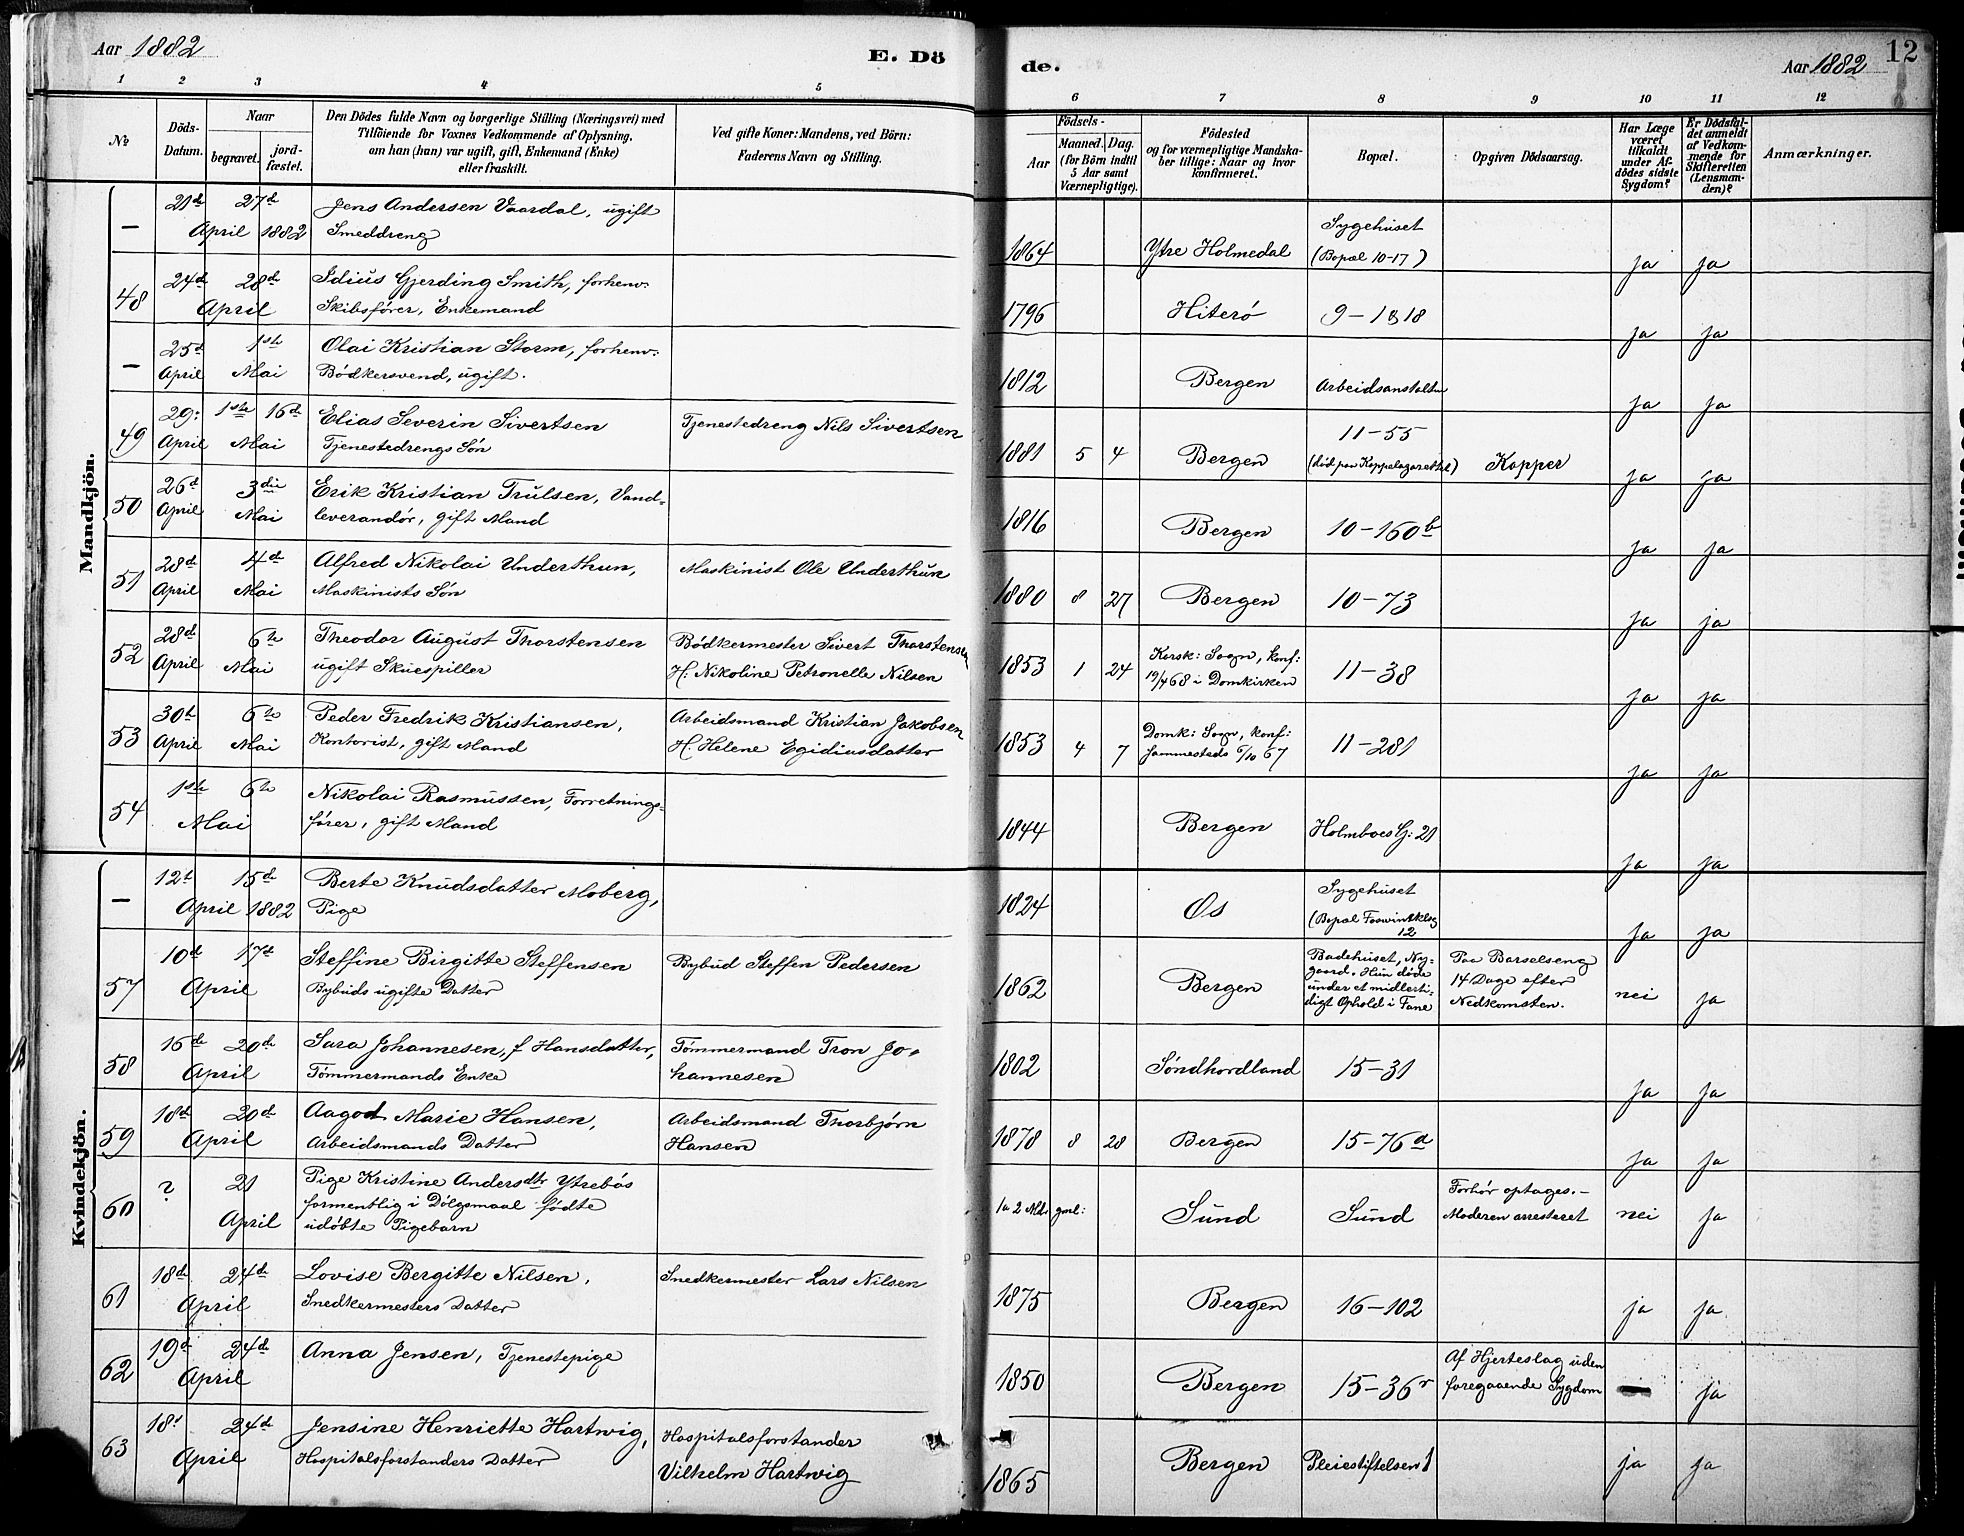 Aar 1882 E. Dö de. Aar 1882 12
1 2 3 4 5 6 7 8 9 10 11 12
№ Döds-Datum. Naar begravet. jord-fæstet.
Den Dödes fulde Navn og borgerlige Stilling (Næringsvei) med
Tilföiende for Voxnes Vedkommende af Oplysning,
om han (hun) var ugift, gift, Enkemand (Enke)
eller fraskilt.
Ved gifte Koner: Mandens, ved Börn:
Faderens Navn og Stilling.
Födsels-
Aar Maaned. Dag.
(for Börn indtil
5 Aar samt
Værnepligtige).
Födested
og for værnepligtige Mandska-
ber tillige: Naar og hvor
konfirmeret.
Bopæl.
Opgiven Dödsaarsag.
Har Læge
været
tilkaldt
under Af-
dödes sidste
Sygdom?
Er Dödsfal-
det anmeldt
af Vedkom-
mende for
Skifteretten
(Lensman-
den)?
Anmærkninger.
Mandkjön.
— 21de 27de Jens Andersen Vaardal, ugift Sygehuset
April 1882 Smeddreng 1864 Ytre Holmedal (Bopæl 10-17) ja ja
48 24de 28de Idius Gjerding Smith, forhenv.
April Skibsfører, Enkemand 1796 Hiterö 9-18 18 ja ja
— 25de 1ste Olai Kristian Storm, forhenv.
April Mai Bödkersvend, ugift. 1812 Bergen Arbeidsanstalten ja ja
49 29: 1ste 16de Elias Severin Sivertsen Tjenestedreng Nils Sivertsen 11-55
April Mai Tjenestedrengs Sön 1881 5 4 Bergen (död paa Koppelazarettet) Kopper ja ja
50 26de 3die Erik Kristian Trulsen, Vand-
April Mai leverandör, gift Mand 1816 Bergen 10-160b ja ja
51 28de 4de Alfred Nikolai Underthun, Maskinist Ole Underthun
April Mai Maskinists Sön 1880 8 27 Bergen 10-73 ja ja
52 28de 6te Theodor August Thorstensen Bödkermester Sivert Thorstensen Korsk: Sogn, konf:
April Mai ugift Skuespiller H: Nikoline Petronelle Nilsen 1853 1 24 19/4 68 i Domkirken 11-38 ja ja
53 30te 6te Peder Fredrik Kristiansen, Arbeidsmand Kristian Jakobsen Domk: Sogn, konf:
April Mai Kontorist, gift Mand H: Helene Egidiusdatter 1853 4 7 sammesteds 6/10 67 11-281 ja ja
54 1ste 6te Nikolai Rasmussen, Forretnings-
Mai fører, gift Mand 1844 Bergen Holmboes G: 21 ja ja
Kvindekjön.
— 12te 15de Berte Knudsdatter Moberg, Sygehuset
April 1882 Pige 1824 Os (Bopæl 12 ja ja
57 10de 17de Steffine Birgitte Steffensen Bybud Steffen Pedersen Badehuset, Ny- Paa Barselseng
April Bybuds ugifte Datter 1862 Bergen gaard. Hun døde 14 Dage efter
under et midlerti- Nedkomsten. nei ja
digt Ophold i Fane
58 16de 20de Sara Johannesen, f Hansdatter, Tömmermand Tron Jo-
April Tömmermands Enke hannesen 1802 Söndhordland 15-31 ja ja
59 18de 20de Aagot Marie Hansen, Arbeidsmand Thorbjørn
April Arbeidsmands Datter Hansen 1878 8 28 Bergen 15-76a ja ja
60 ? 21 Pige Kristine Andersdtr Ytrebös Forhör optages.-
April formentlig i Dölgsmaal fødte 1 a 2 Mdr. gml: Sund Sund Moderen arresteret nei ja
udöbte Pigebarn
61 18de 24de Lovise Bergitte Nilsen, Snedkermester Lars Nilsen
April Snedkermesters Datter 1875 Bergen 16-102 ja ja
62 19de 24de Anna Jensen, Tjenestepige Af Hjerteslag uden
April 1850 Bergen 15-36r foregaaende Sygdom — ja
63 18de 24de Jensine Henriette Hartwig, Hospitalsforstander
April Hospitalsforstanders Datter Vilhelm Hartwig 1865 Bergen Pleiestiftelsen 1 ja ja